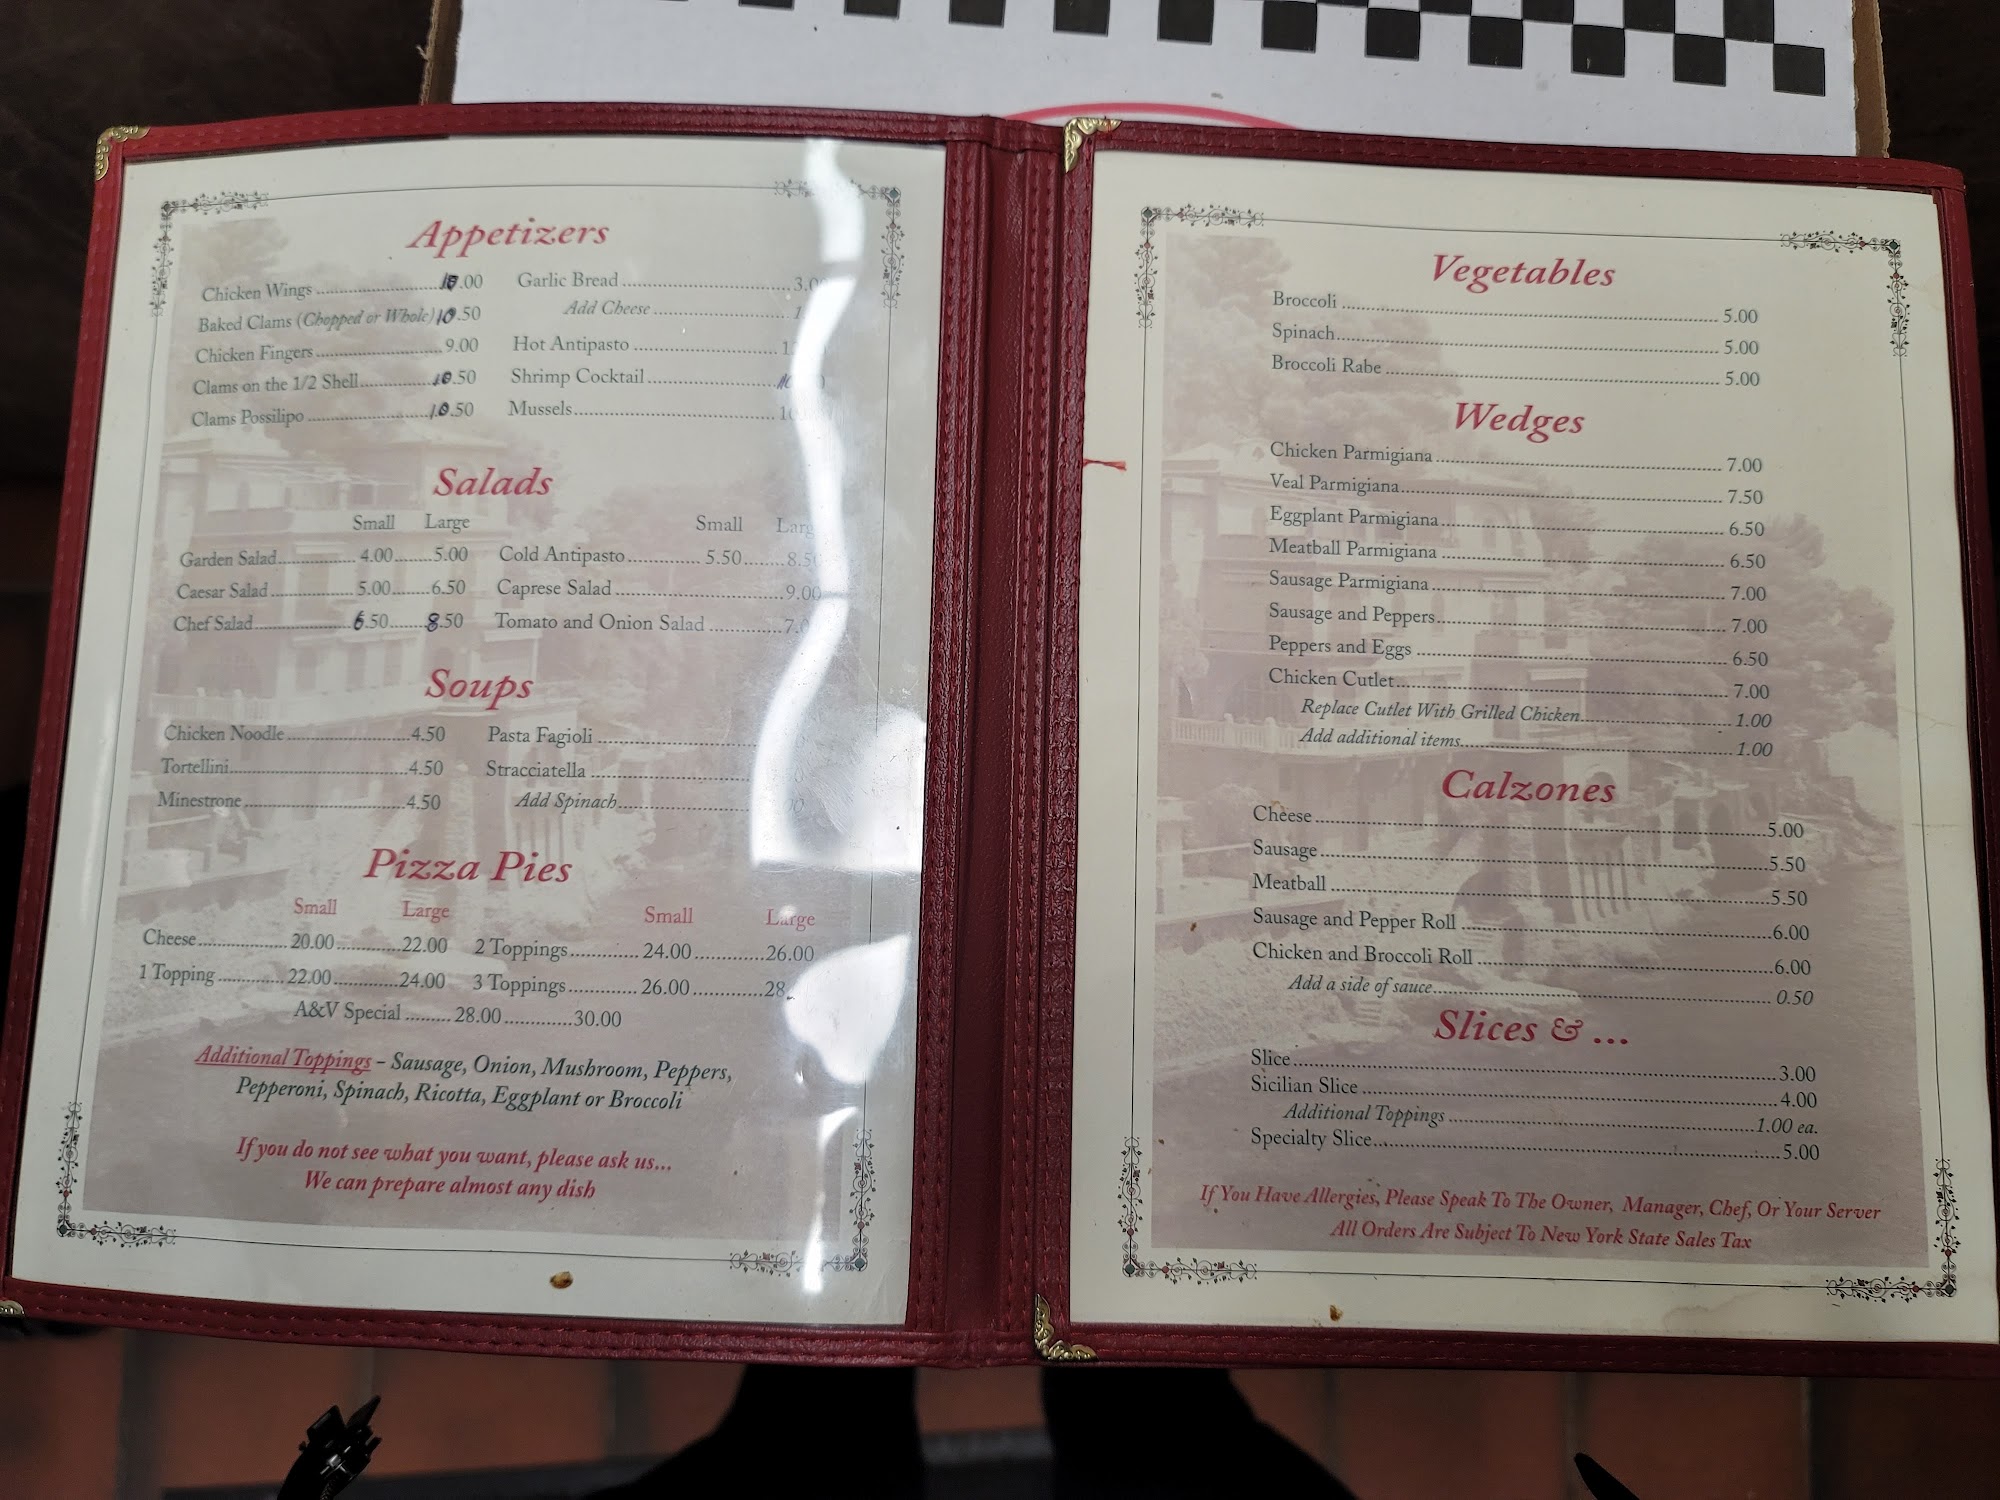 Appetizers
Chicken Wings .00
Baked Clams (Chopped or Whole) 10.50
Chicken Fingers 9.00
Clams on the 1/2 Shell 10.50
Clams Possilipo 10.50
Garlic Bread 3.00
Add Cheese
Hot Antipasto
Shrimp Cocktail
Mussels
Salads
Small Large
Garden Salad 4.00 5.00
Caesar Salad 5.00 6.50
Chef Salad 6.50 8.50
Small Large
Cold Antipasto 5.50 8.50
Caprese Salad 9.00
Tomato and Onion Salad
Soups
Chicken Noodle 4.50
Tortellini 4.50
Minestrone 4.50
Pasta Fagioli
Stracciatella
Add Spinach
Pizza Pies
Small Large
Cheese 20.00 22.00
1 Topping 22.00 24.00
Small Large
2 Toppings 24.00 26.00
3 Toppings 26.00 28
A&V Special 28.00 30.00
Additional Toppings – Sausage, Onion, Mushroom, Peppers,
Pepperoni, Spinach, Ricotta, Eggplant or Broccoli
If you do not see what you want, please ask us...
We can prepare almost any dish
Vegetables
Broccoli 5.00
Spinach 5.00
Broccoli Rabe 5.00
Wedges
Chicken Parmigiana 7.00
Veal Parmigiana 7.50
Eggplant Parmigiana 6.50
Meatball Parmigiana 6.50
Sausage Parmigiana 7.00
Sausage and Peppers 7.00
Peppers and Eggs 6.50
Chicken Cutlet 7.00
Replace Cutlet With Grilled Chicken 1.00
Add additional items 1.00
Calzones
Cheese 5.00
Sausage 5.50
Meatball 5.50
Sausage and Pepper Roll 6.00
Chicken and Broccoli Roll 6.00
Add a side of sauce 0.50
Slices & ...
Slice 3.00
Sicilian Slice 4.00
Additional Toppings 1.00 ea.
Specialty Slice 5.00
If You Have Allergies, Please Speak To The Owner, Manager, Chef, Or Your Server
All Orders Are Subject To New York State Sales Tax